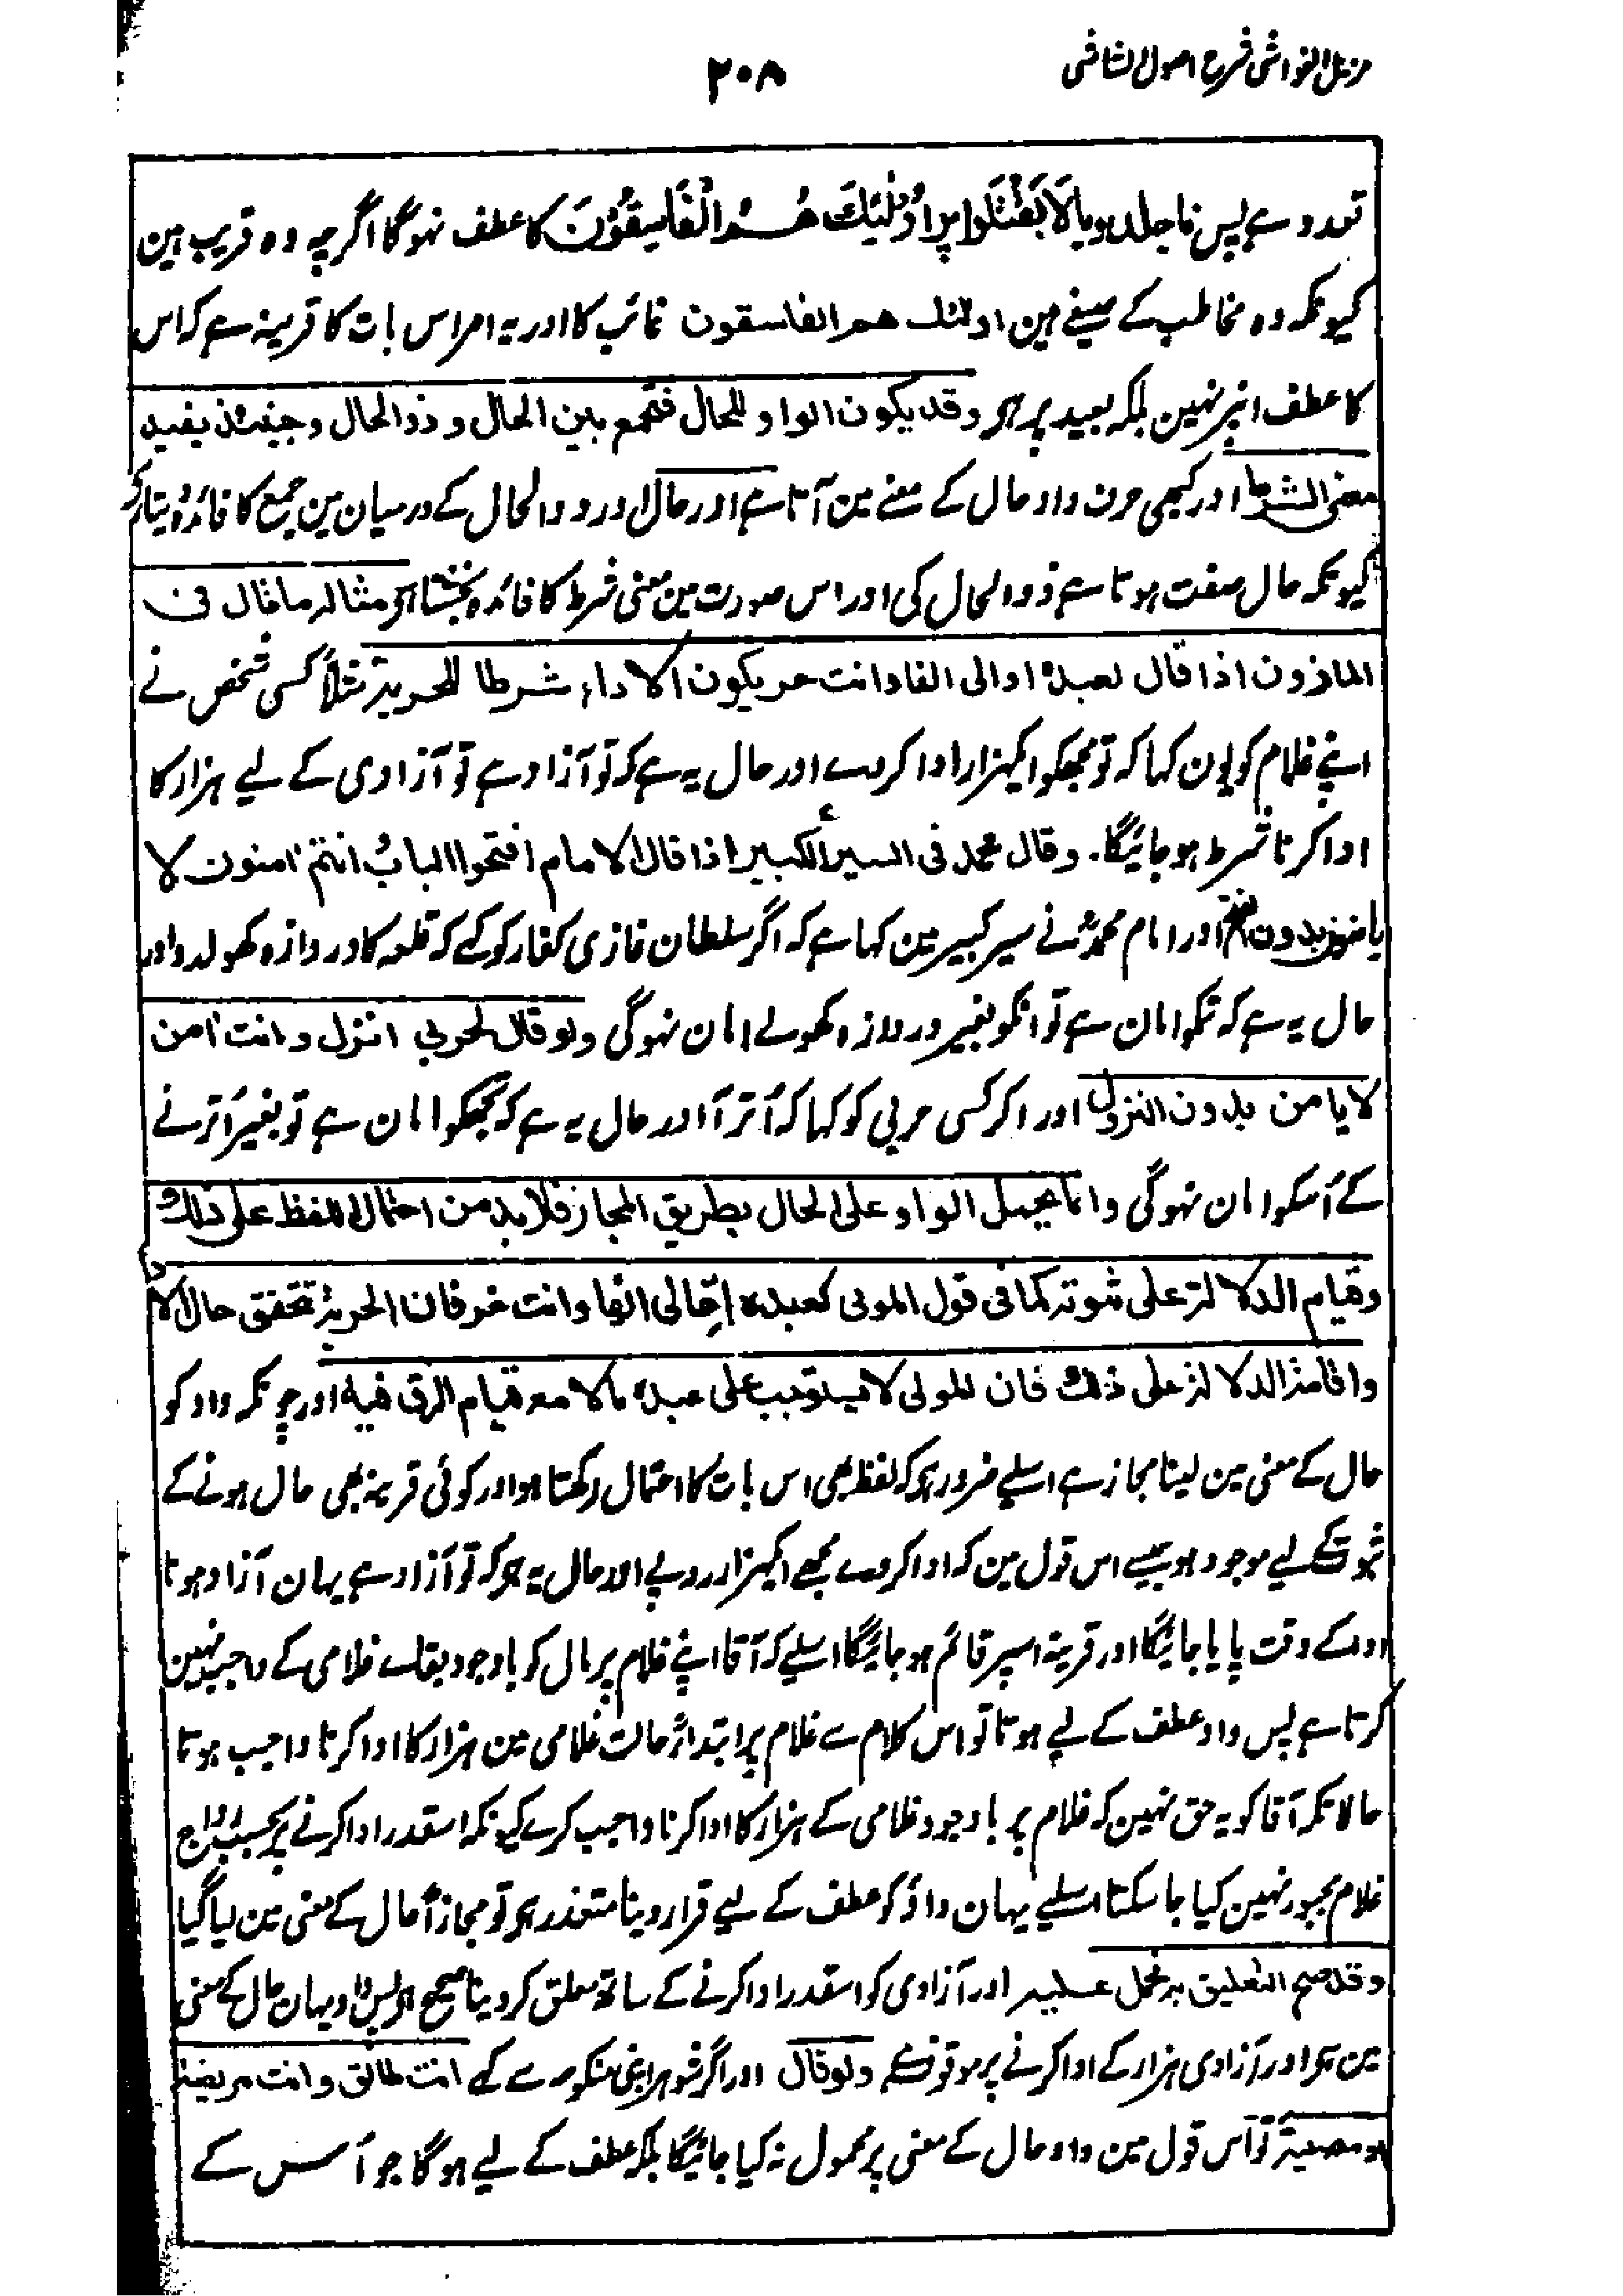 مزیل الغواشی شرح اصول الشاشی
۲۰۸
تعدد ہے پس فاجلدو یا لَا تَقْبَلُوا پر اُولٰئِكَ هُمُ الْفَاسِقُوْنَ کا عطف نہوگا اگرچہ وہ قریب ہین
کیونکہ وہ مخاطب کے صیغے ہین اولئك هم الفاسقون غائب کا اور یہ امر اس بات کا قرینہ ہے کہ اس
کا عطف انپر نہین بلکہ بعید پر ہو وقد یکون الواو للحال فتجمع بین الحال و ذو الحال وحینئذ یفید
معنی الشرط اور کبھی حرف واو حال کے معنے مین آتا ہے اور حال اور ذوالحال کے درمیان مین جمع کا فائدہ دیتا ہو
کیونکہ حال صفت ہوتا ہے ذوالحال کی اور اس صورت مین معنی شرط کا فائدہ بخشتا ہو مثاله ما قال فی
الماذون اذا قال لعبده ادالی الفا وانت حر یکون الاداء شرطا للحریة مثلاً کسی شخص نے
اپنے غلام کو یون کہا کہ تو مجھکو ایکہزار ادا کردے اور حال یہ ہے کہ تو آزاد ہے تو آزادی کے لیے ہزار کا
ادا کرنا شرط ہو جائیگا۔ وقال محمد فی السیر الکبیر اذا قال الامام افتحوا الباب وانتم اٰمنون لا
یامنون بدون الفتح اور امام محمدؒ نے سیر کبیر مین کہا ہے کہ اگر سلطان غازی کفار کو کہے کہ قلعہ کا دروازہ کھولدو اور
حال یہ ہے کہ تمکو امان ہے تو انکو بغیر دروازہ کھولے امان نہوگی ولو قال لحربی انزل وانت اٰمن
لا یامن بدون النزول اور اگر کسی حربی کو کہا کہ اُتر آ اور حال یہ ہے کہ تجھکو امان ہے تو بغیر اُترنے
کے اُسکو امان نہوگی وانما یحمل الواو علی الحال بطریق المجاز فلا بد من احتمال اللفظ علی ذلك
وقیام الدلالة علی ثبوته کما فی قول المولی لعبده ادّ الی الفا وانت حر فان الحریة تتحقق حال الاداء
واقامة الدلالة علی ذلك فان المولی لا یستوجب علی عبده مالا مع قیام الرق فیه اور چونکہ واو کو
حال کے معنی مین لینا مجاز ہے اسلیے ضرور ہو کہ لفظ بھی اس بات کا احتمال رکھتا ہو اور کوئی قرینہ بھی حال ہونے کے
ثبوت کے لیے موجود ہو جیسے اس قول مین کہ ادا کردے مجھے ایکہزار روپے اور حال یہ ہو کہ تو آزاد ہے یہان آزاد ہونا
ادا کے وقت پایا جائیگا اور قرینہ اسپر قائم ہو جائیگا اسلیے کہ آقا اپنے غلام پر مال کو باوجود بقاے غلامی کے واجب نہین
کرتا ہے پس واو عطف کے لیے ہوتا تو اس کلام سے غلام پر ابتداءً حالت غلامی مین ہزار کا ادا کرنا واجب ہوتا
حالانکہ آقا کو یہ حق نہین کہ غلام پر باوجود غلامی کے ہزار کا ادا کرنا واجب کرے کیونکہ اسقدر ادا کرنے پر بحسب رواج
غلام مجبور نہین کیا جاسکتا اسلیے یہان واؤ کو عطف کے لیے قرار دینا متعذر ہو تو مجازاً حال کے معنی مین لیا گیا
وقد صح التعلیق به فحمل علیه اور آزادی کو اسقدر ادا کرنے کے ساتھ معلق کردینا صحیح ہو پس واو یہان حال کے معنی
مین ہو اور آزادی ہزار کے ادا کرنے پر موقوف ہے ولو قال اور اگر شوہر اپنی منکوحہ سے کہے انت طالق وانت مریضة
او مصلیة تو اُس قول مین واو حال کے معنی پر محمول نہ کیا جائیگا بلکہ عطف کے لیے ہوگا جو اُس کے